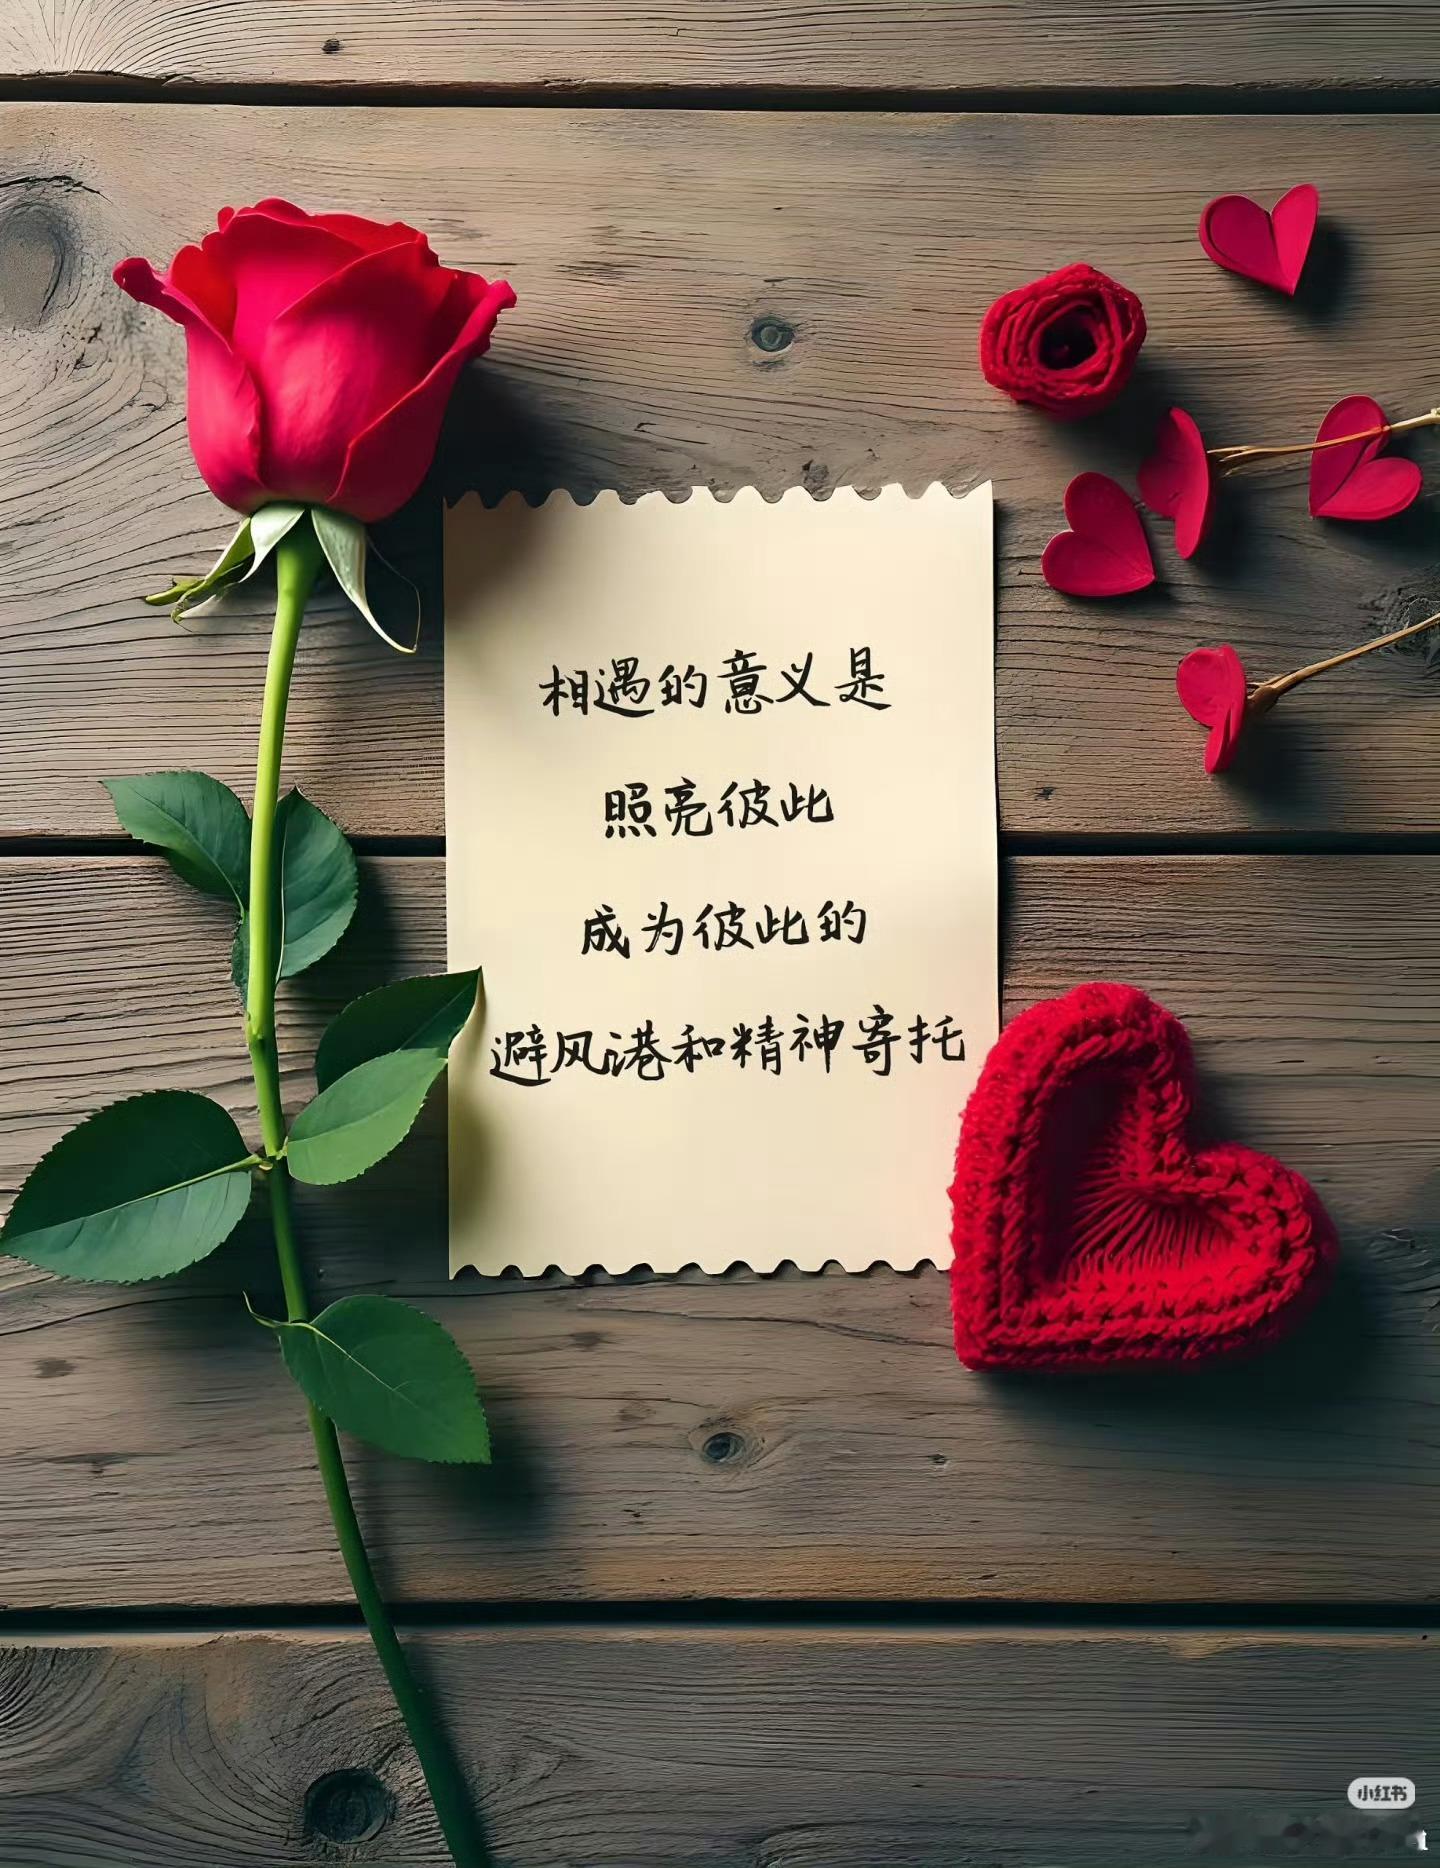 相遇的意义是
照亮彼此
成为彼此的
避风港和精神寄托
小红书